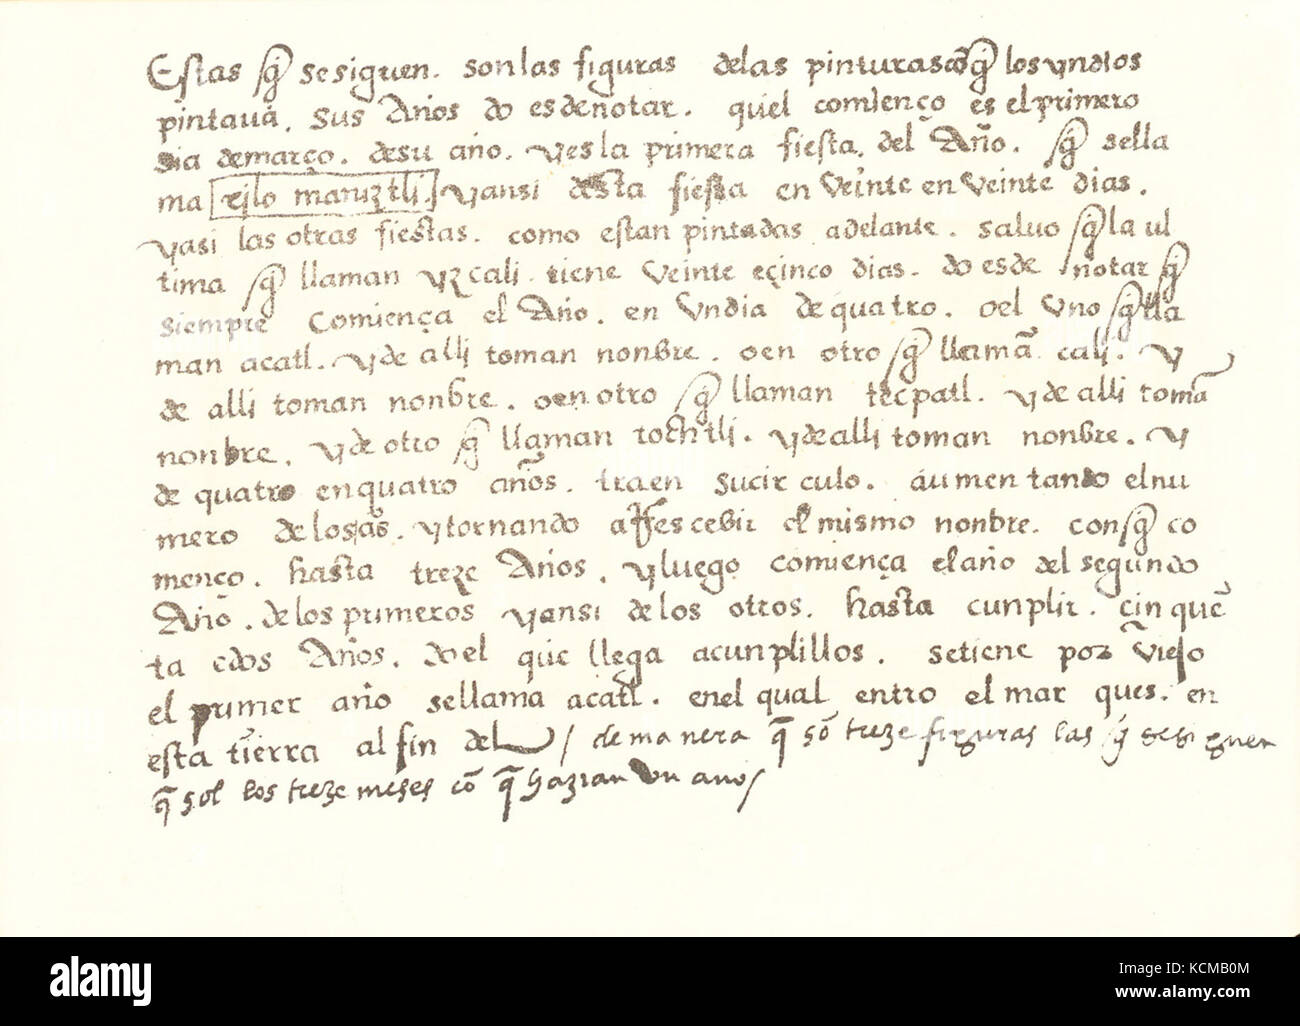 Estas q̃ sesiguen. sonlas figuras delas pinturas cõ q̃ los yndios
pintauã. sus Años do esdenotar. quel comienço es el primero
dia demarço. desu año. yesla primera fiesta. del Año. q̃ sella
ma xilo manıztli. yansi desta fiesta en veinte en veinte dias.
yasi las otras fiestas. como estan pintadas adelante. saluo q̃ la ul
tima q̃ llaman yzcali. tiene veinte eçinco dias. do esde notar q̃
siempre comiença el Año. en vndia de quatro. oel vno q̃ lla
man acatl. yde alli toman nonbre. oen otro q̃ llamã cali. y
de alli toman nonbre. oen otro q̃ llaman tecpatl. yde alli tomã
nonbre. yde otro q̃ llaman tochtli. ydealli toman nonbre. y
de quatro enquatro años. traen sucirculo. aumentando elnu
mero delosãs. ytornando arresçebir el mismo nonbre. conq̃ co
menço. hasta treze Años. yluego comiença elaño del segundo
Año. delos primeros yansi delos otros. hasta cunplir. çinquẽ
ta edos Años. do el que llega acunplillos. setiene por viejo
el primer año sellama acatl. enel qual entro el mar ques. en
esta tierra al fin del / de manera q̃ sõ treze figuras las q̃ sesiguen
q̃ sol los treze meses cõ q̃ hazian vn año/
alamy
Image ID: KCMB0M
www.alamy.com